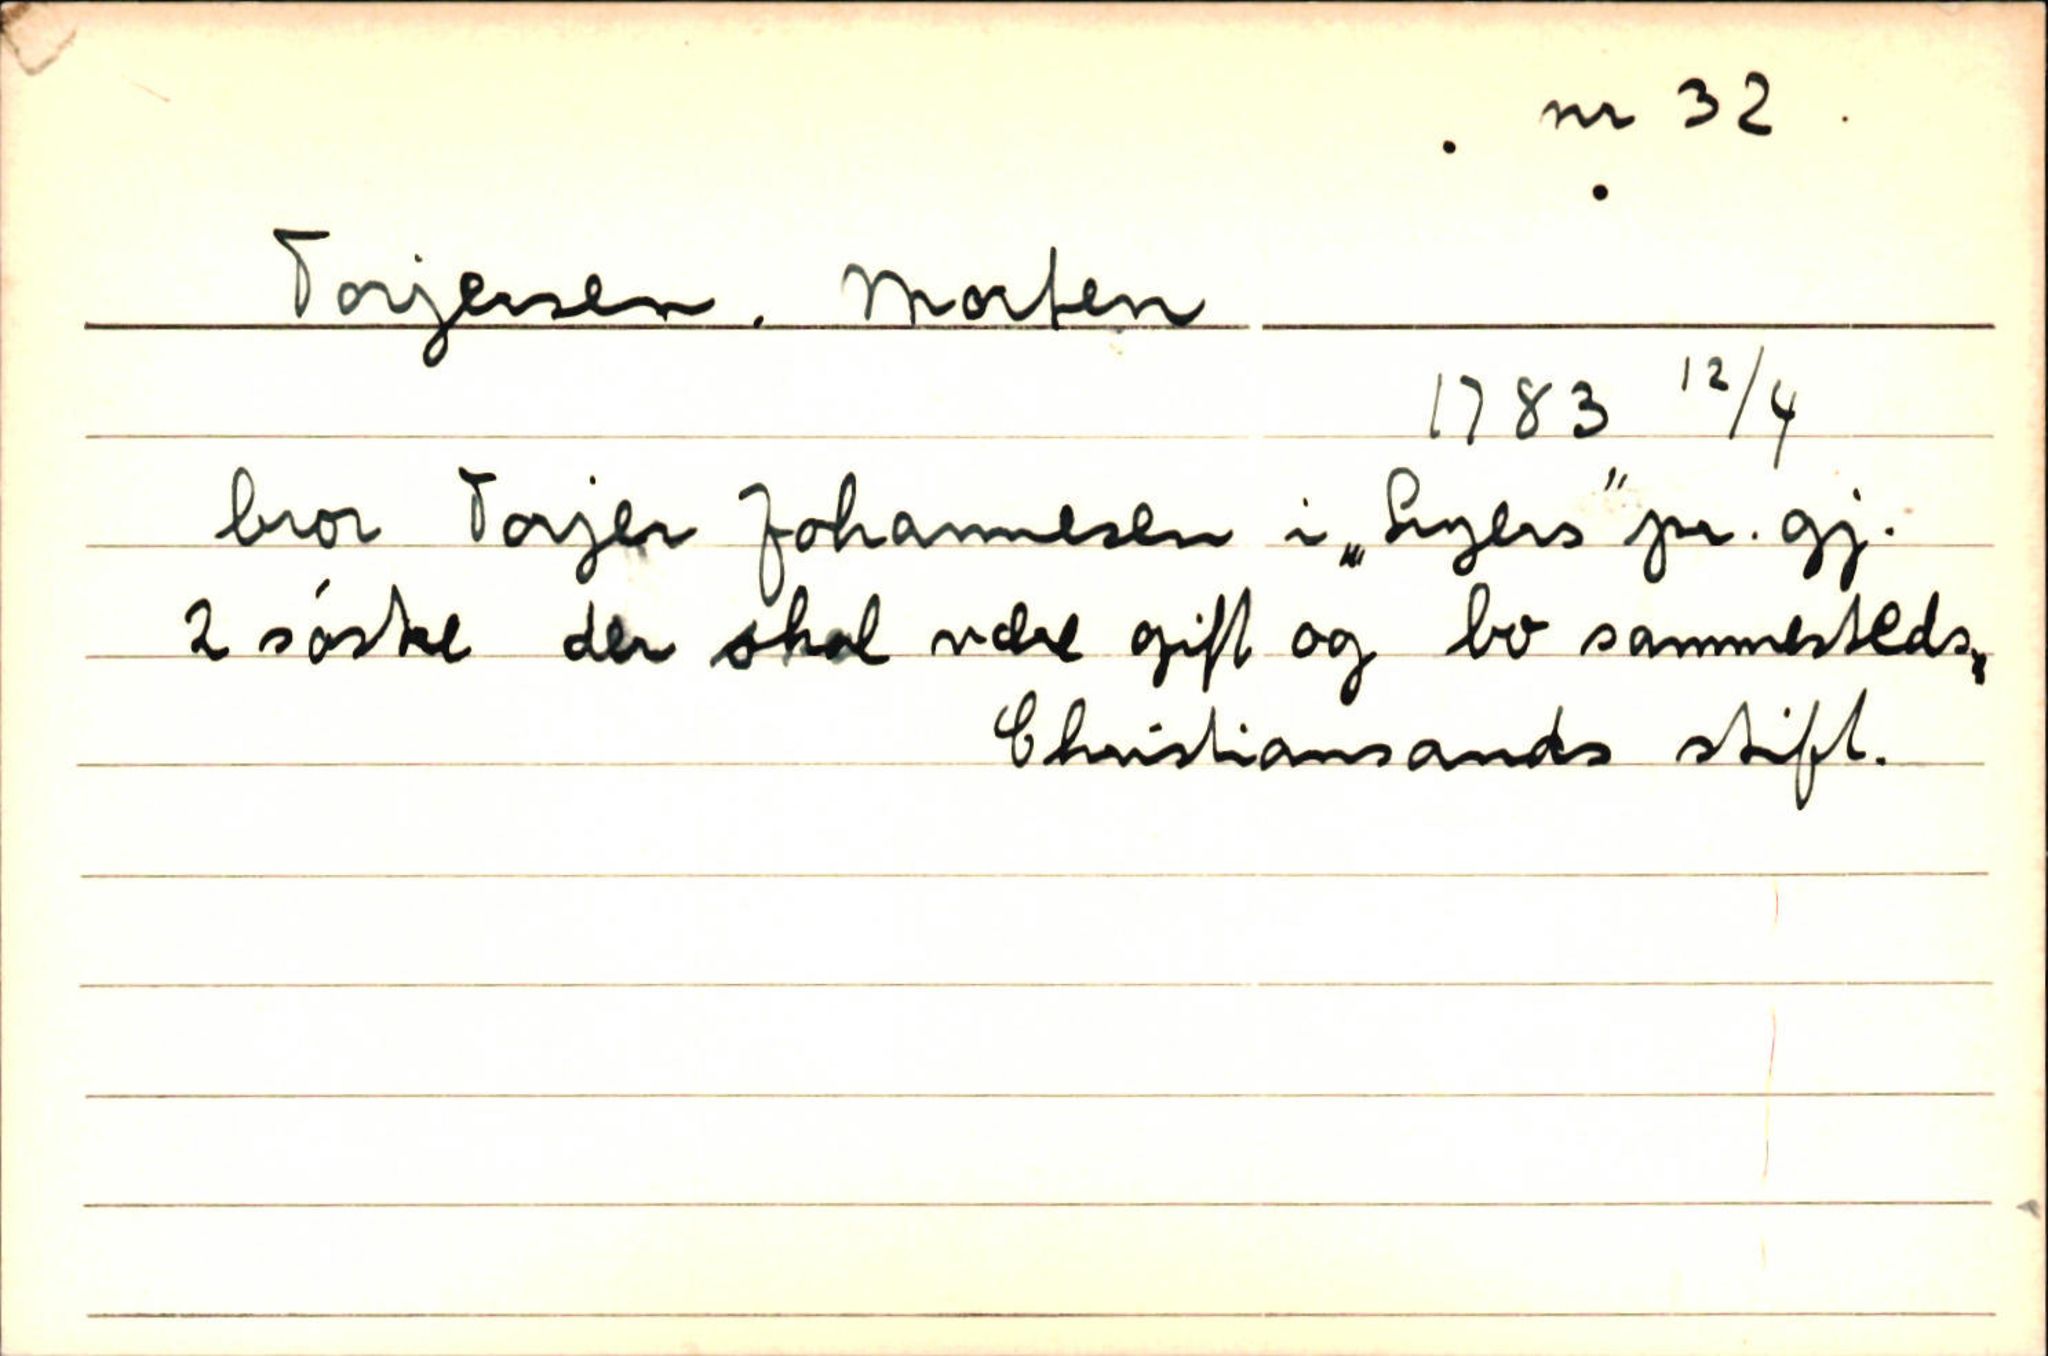 nr 32
Torjersen. Morten
1783 12/4
bror Torjer Johannesen i „Lyers" pr. gj.
2 søske der skal være gift og bo sammesteds,
Christiansands stift.